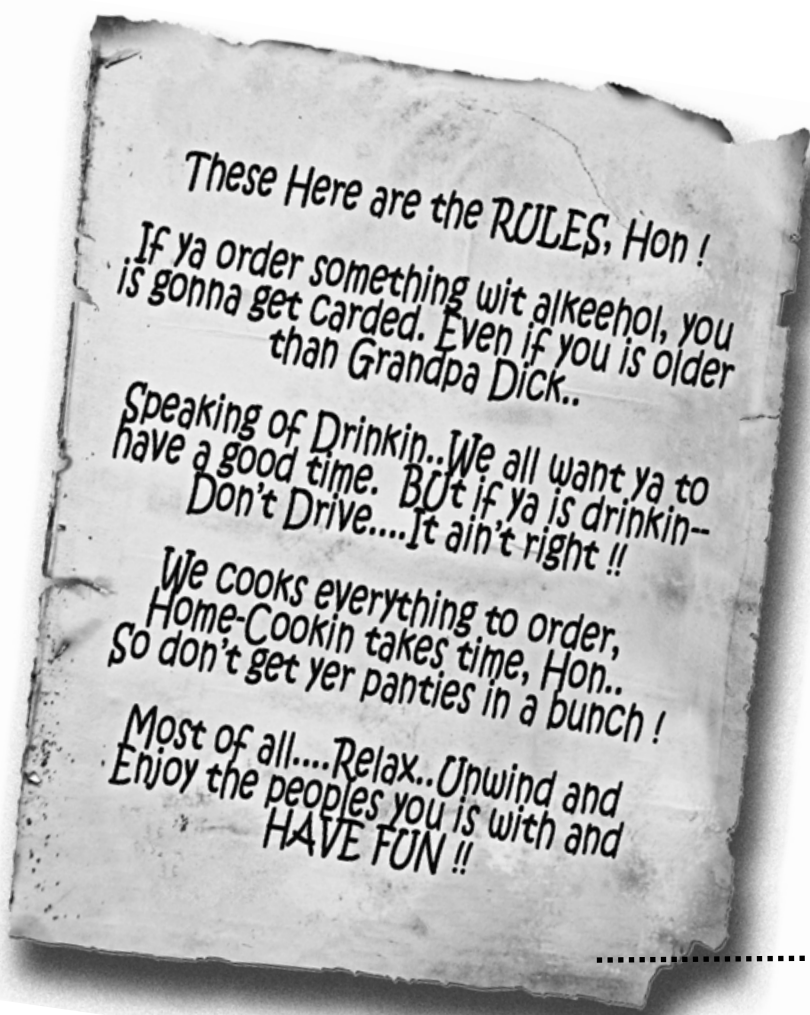 These Here are the RULES, Hon !
If ya order something wit alkeehol, you
is gonna get carded. Even if you is older
than Grandpa Dick..
Speaking of Drinkin..We all want ya to
have a good time. BUt if ya is drinkin--
Don't Drive....It ain't right !!
We cooks everything to order,
Home-Cookin takes time, Hon..
So don't get yer panties in a bunch !
Most of all....Relax..Unwind and
Enjoy the peoples you is with and
HAVE FUN !!